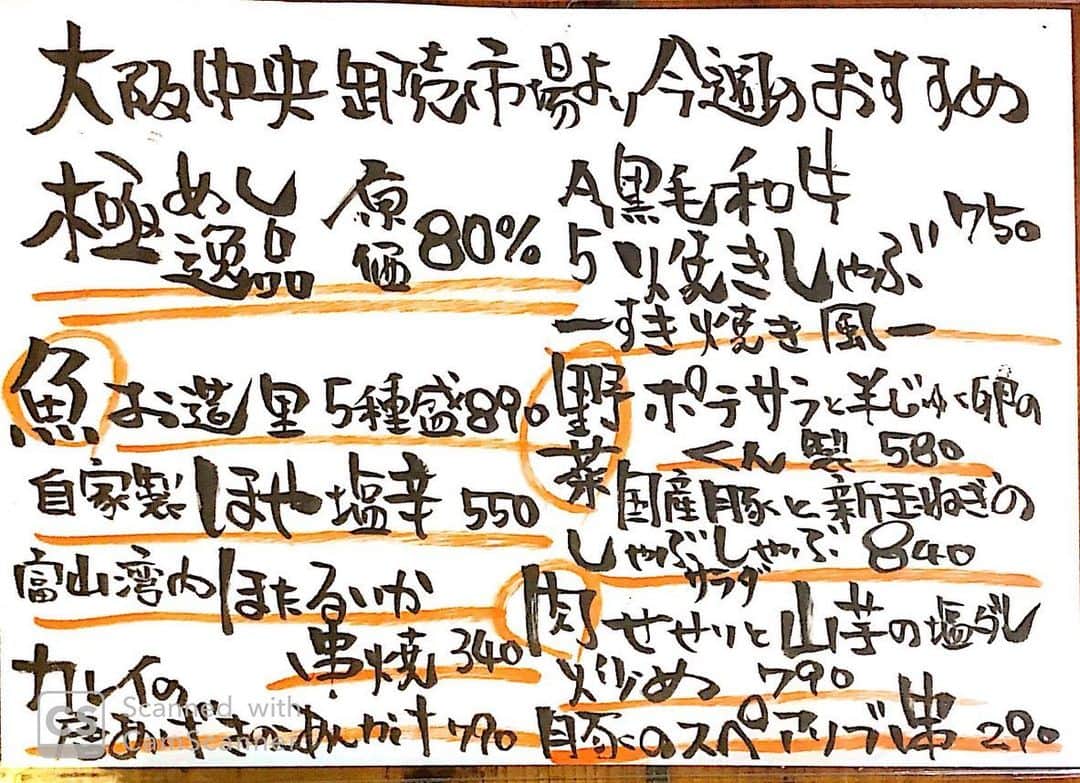 大阪中央卸売市場より今週のおすすめ
極めし逸品 原価80%
魚 お造里5種盛890
自家製ほや塩辛 550
富山湾内ほたるいか
串焼 340
カレイの
あんかけ 790
A5黒毛和牛
焼きしゃぶ 750
ーすき焼き風ー
野菜 ポテサラと半じゅく卵の
くん製 580
国産豚と新玉ねぎの
しゃぶしゃぶサラダ 840
肉 せせりと山芋の塩ダレ
炒め 790
豚のスペアリブ串 290
Scanned with
CamScanner
CS